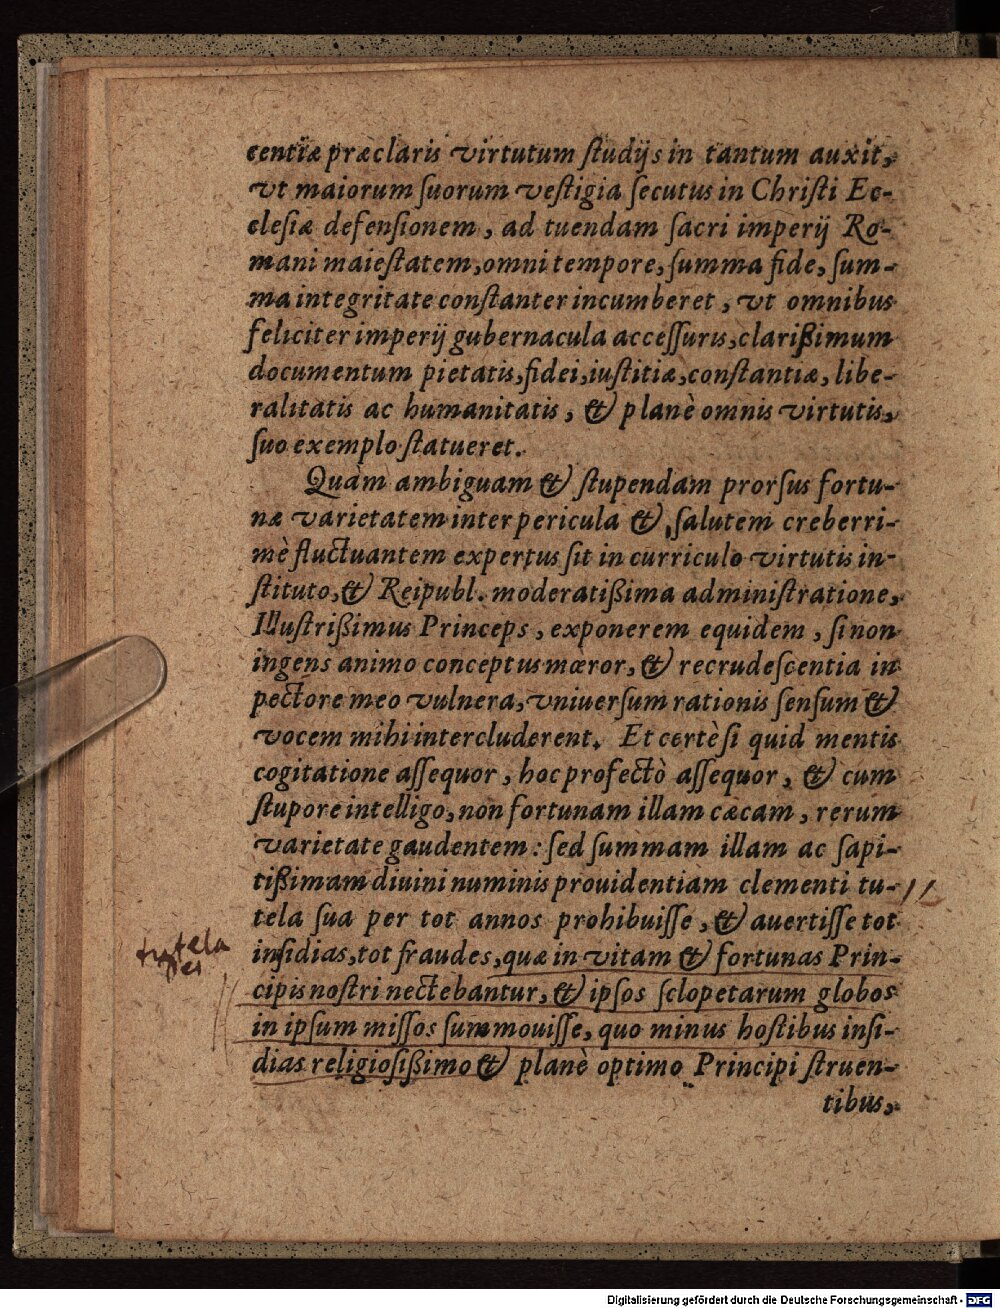 centiæ præclaris virtutum ſtudijs in tantum auxit,
vt maiorum ſuorum veſtigia ſecutus in Chriſti Ec-
cleſiæ defenſionem, ad tuendam ſacri imperij Ro-
mani maieſtatem, omni tempore, ſumma fide, ſum-
ma integritate conſtanter incumberet, vt omnibus
feliciter imperij gubernacula acceſſuris, clarißimum
documentum pietatis, fidei, iuſtitiæ, conſtantiæ, libe-
ralitatis ac humanitatis, & planè omnis virtutis,
ſuo exemplo ſtatueret.
Quàm ambiguam & ſtupendam prorſus fortu-
næ varietatem inter pericula & ſalutem creberri-
mè fluctuantem expertus ſit in curriculo virtutis in-
ſtituto, & Reipubl. moderatißima adminiſtratione,
Illuſtrißimus Princeps, exponerem equidem, ſi non
ingens animo conceptus mœror, & recrudeſcentia in
pectore meo vulnera, vniuerſum rationis ſenſum &
vocem mihi intercluderent. Et certè ſi quid mentis
cogitatione aſſequor, hoc profectò aſſequor, & cum
ſtupore intelligo, non fortunam illam cæcam, rerum
varietate gaudentem: ſed ſummam illam ac ſapi-
tißimam diuini numinis prouidentiam clementi tu-
tela ſua per tot annos prohibuiſſe, & auertiſſe tot
inſidias, tot fraudes, quæ in vitam & fortunas Prin-
cipis noſtri nectebantur, & ipſos ſclopetarum globos
in ipſum miſſos ſummouiſſe, quo minus hoſtibus inſi-
dias religioſißimo & planè optimo Principi ſtruen-
tibus,
tutela
Dei
Digitalisierung gefördert durch die Deutsche Forschungsgemeinschaft - DFG